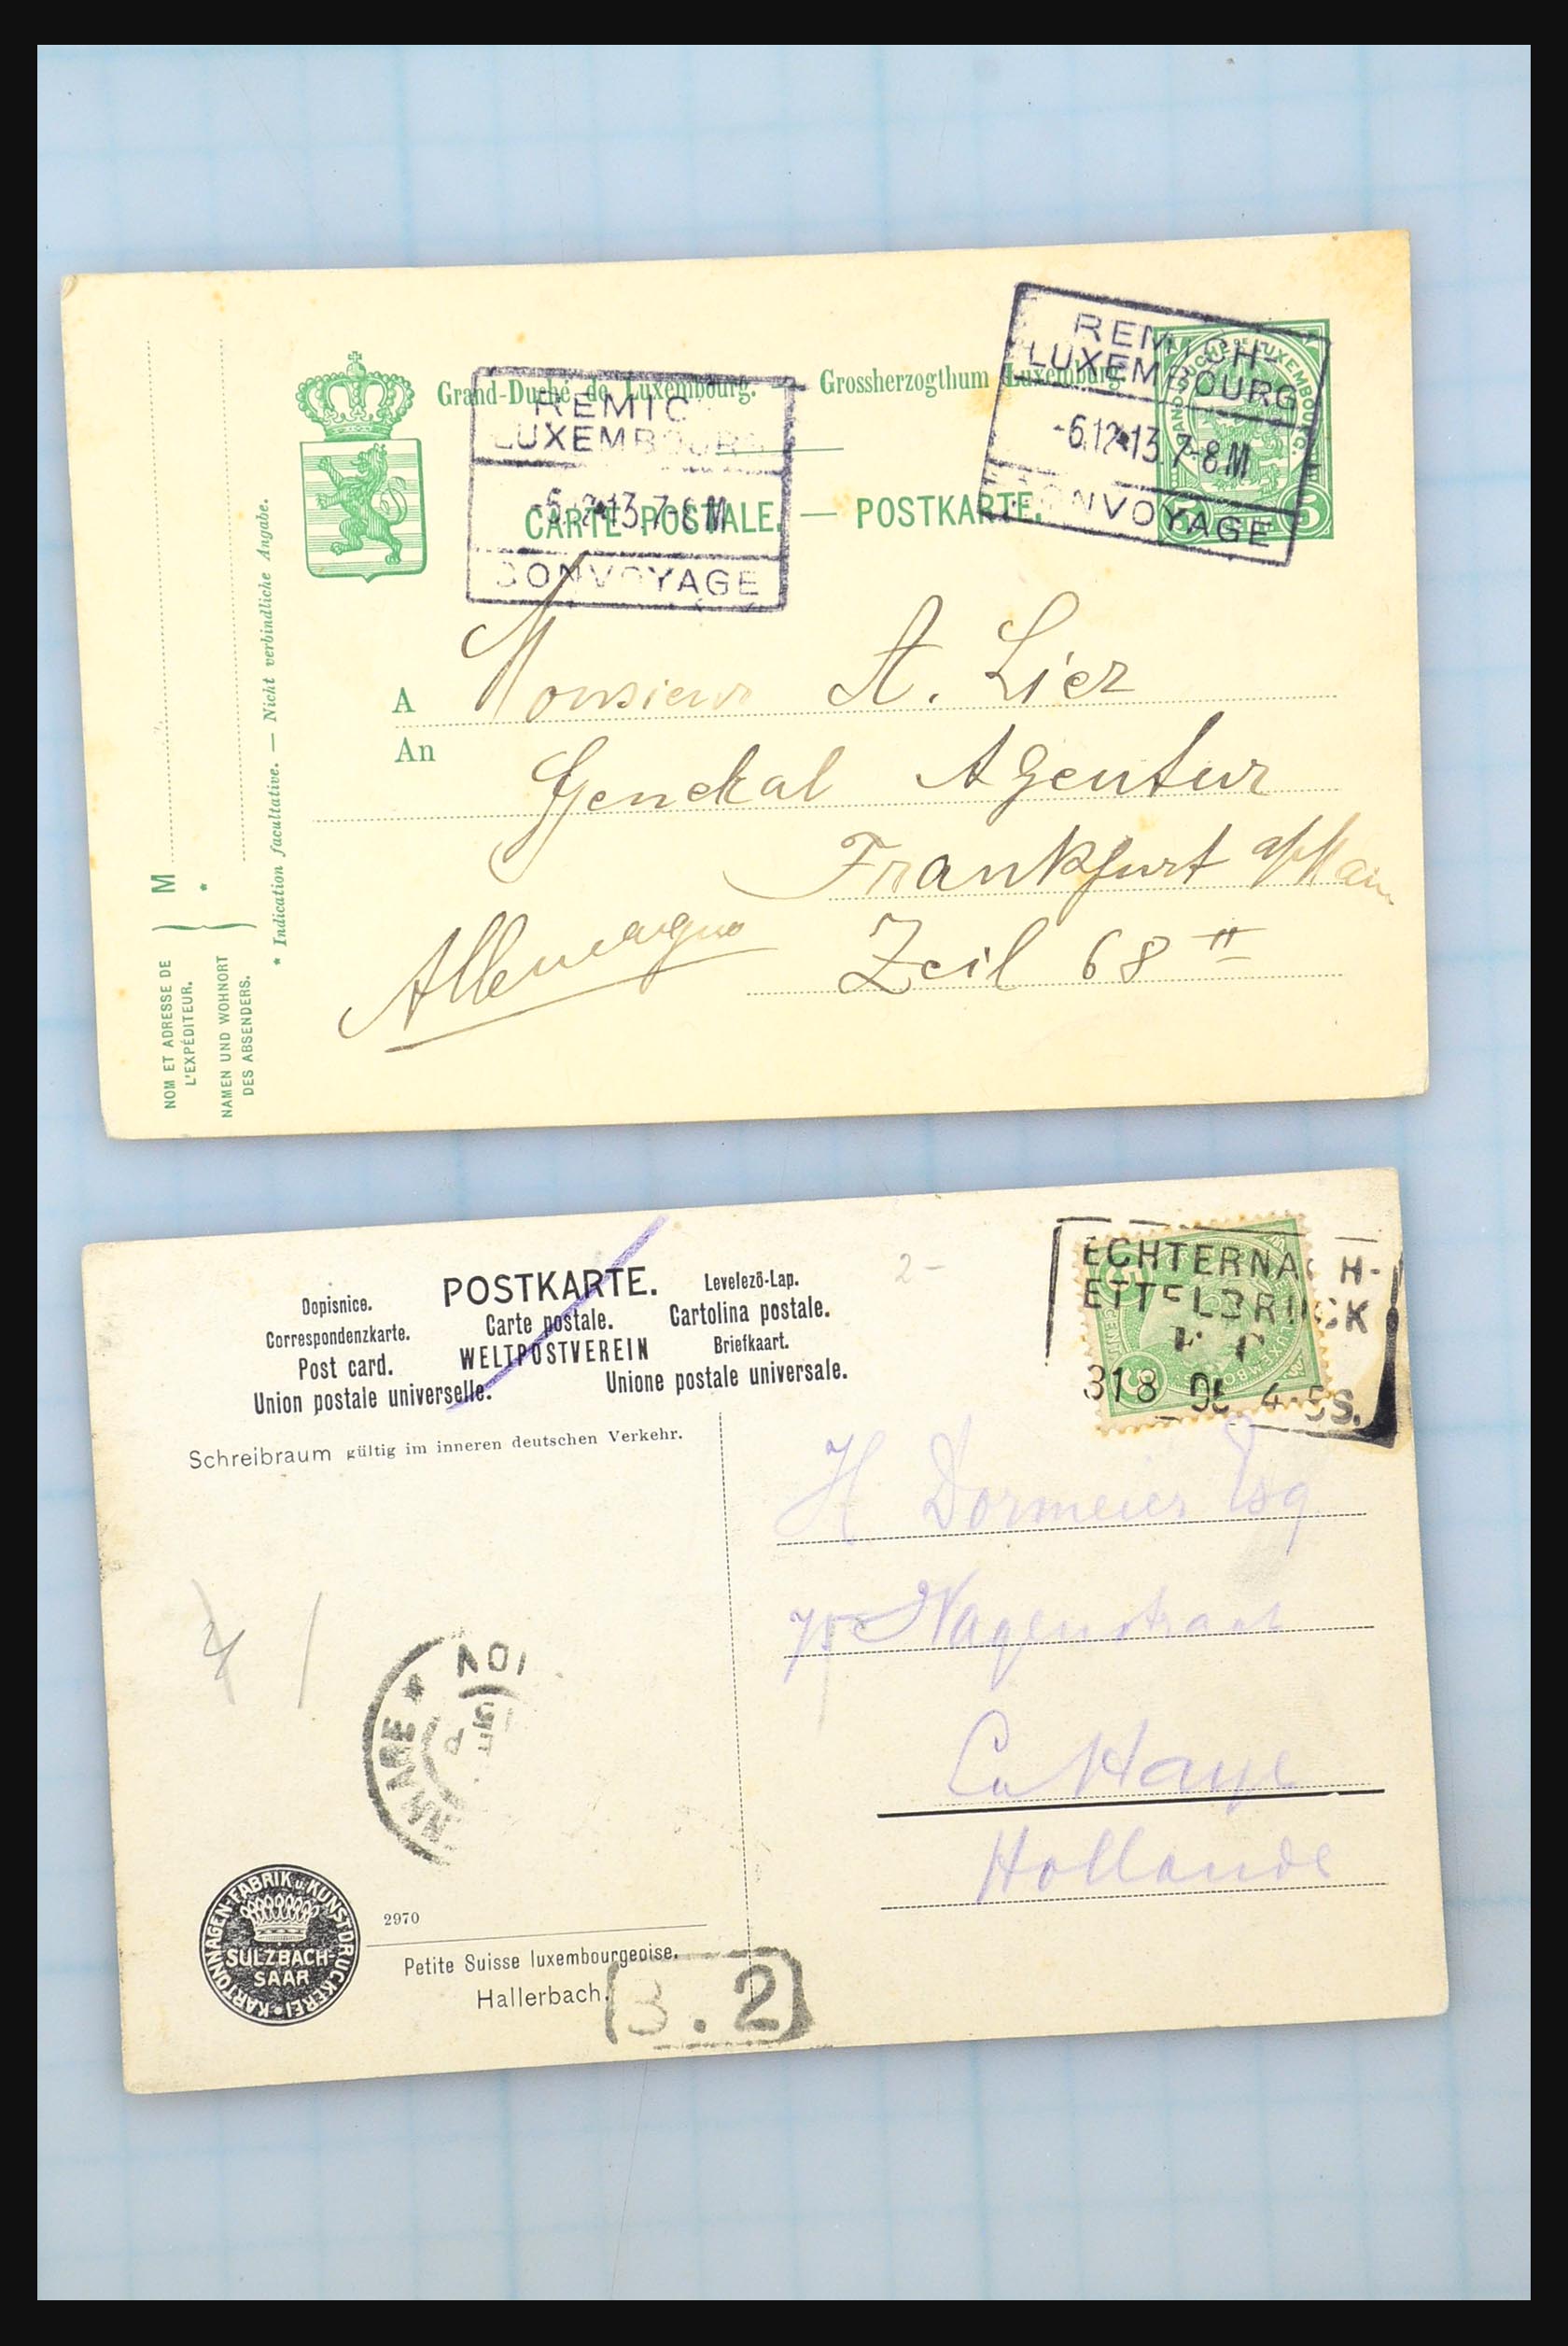 Grand-Duché de Luxembourg. — Grossherzogthum Luxemburg
CARTE POSTALE. — POSTKARTE.
REMIC
LUXEMBOURG
-6.12.13.7-8M
CONVOYAGE
REMICH-
LUXEMBOURG
-6.12.13.7-8M
CONVOYAGE
GRAND-DUCHÉ DE LUXEMBOURG.
5 5
A Monsieur A. Lier
An
General Agentur
Frankfurt a/Main
Allemagne
Zeil 68 II
NOM ET ADRESSE DE
L'EXPÉDITEUR.
M
NAMEN UND WOHNORT
DES ABSENDERS.
*
* Indication facultative. — Nicht verbindliche Angabe.
POSTKARTE.
Dopisnice.
Carte postale.
Levelezö-Lap.
Correspondenzkarte.
WELTPOSTVEREIN
Cartolina postale.
Post card.
Briefkaart.
Union postale universelle.
Unione postale universale.
Schreibraum gültig im inneren deutschen Verkehr.
2-
ECHTERNACH-
ETTELBRUCK
318 4-5S.
H Dormeier Esq
La Haye
Hollande
10V
KARTONNAGEN-FABRIK u. KUNSTDRUCKEREI
SULZBACH-
SAAR
2970
Petite Suisse luxembourgeoise.
Hallerbach.
3.2